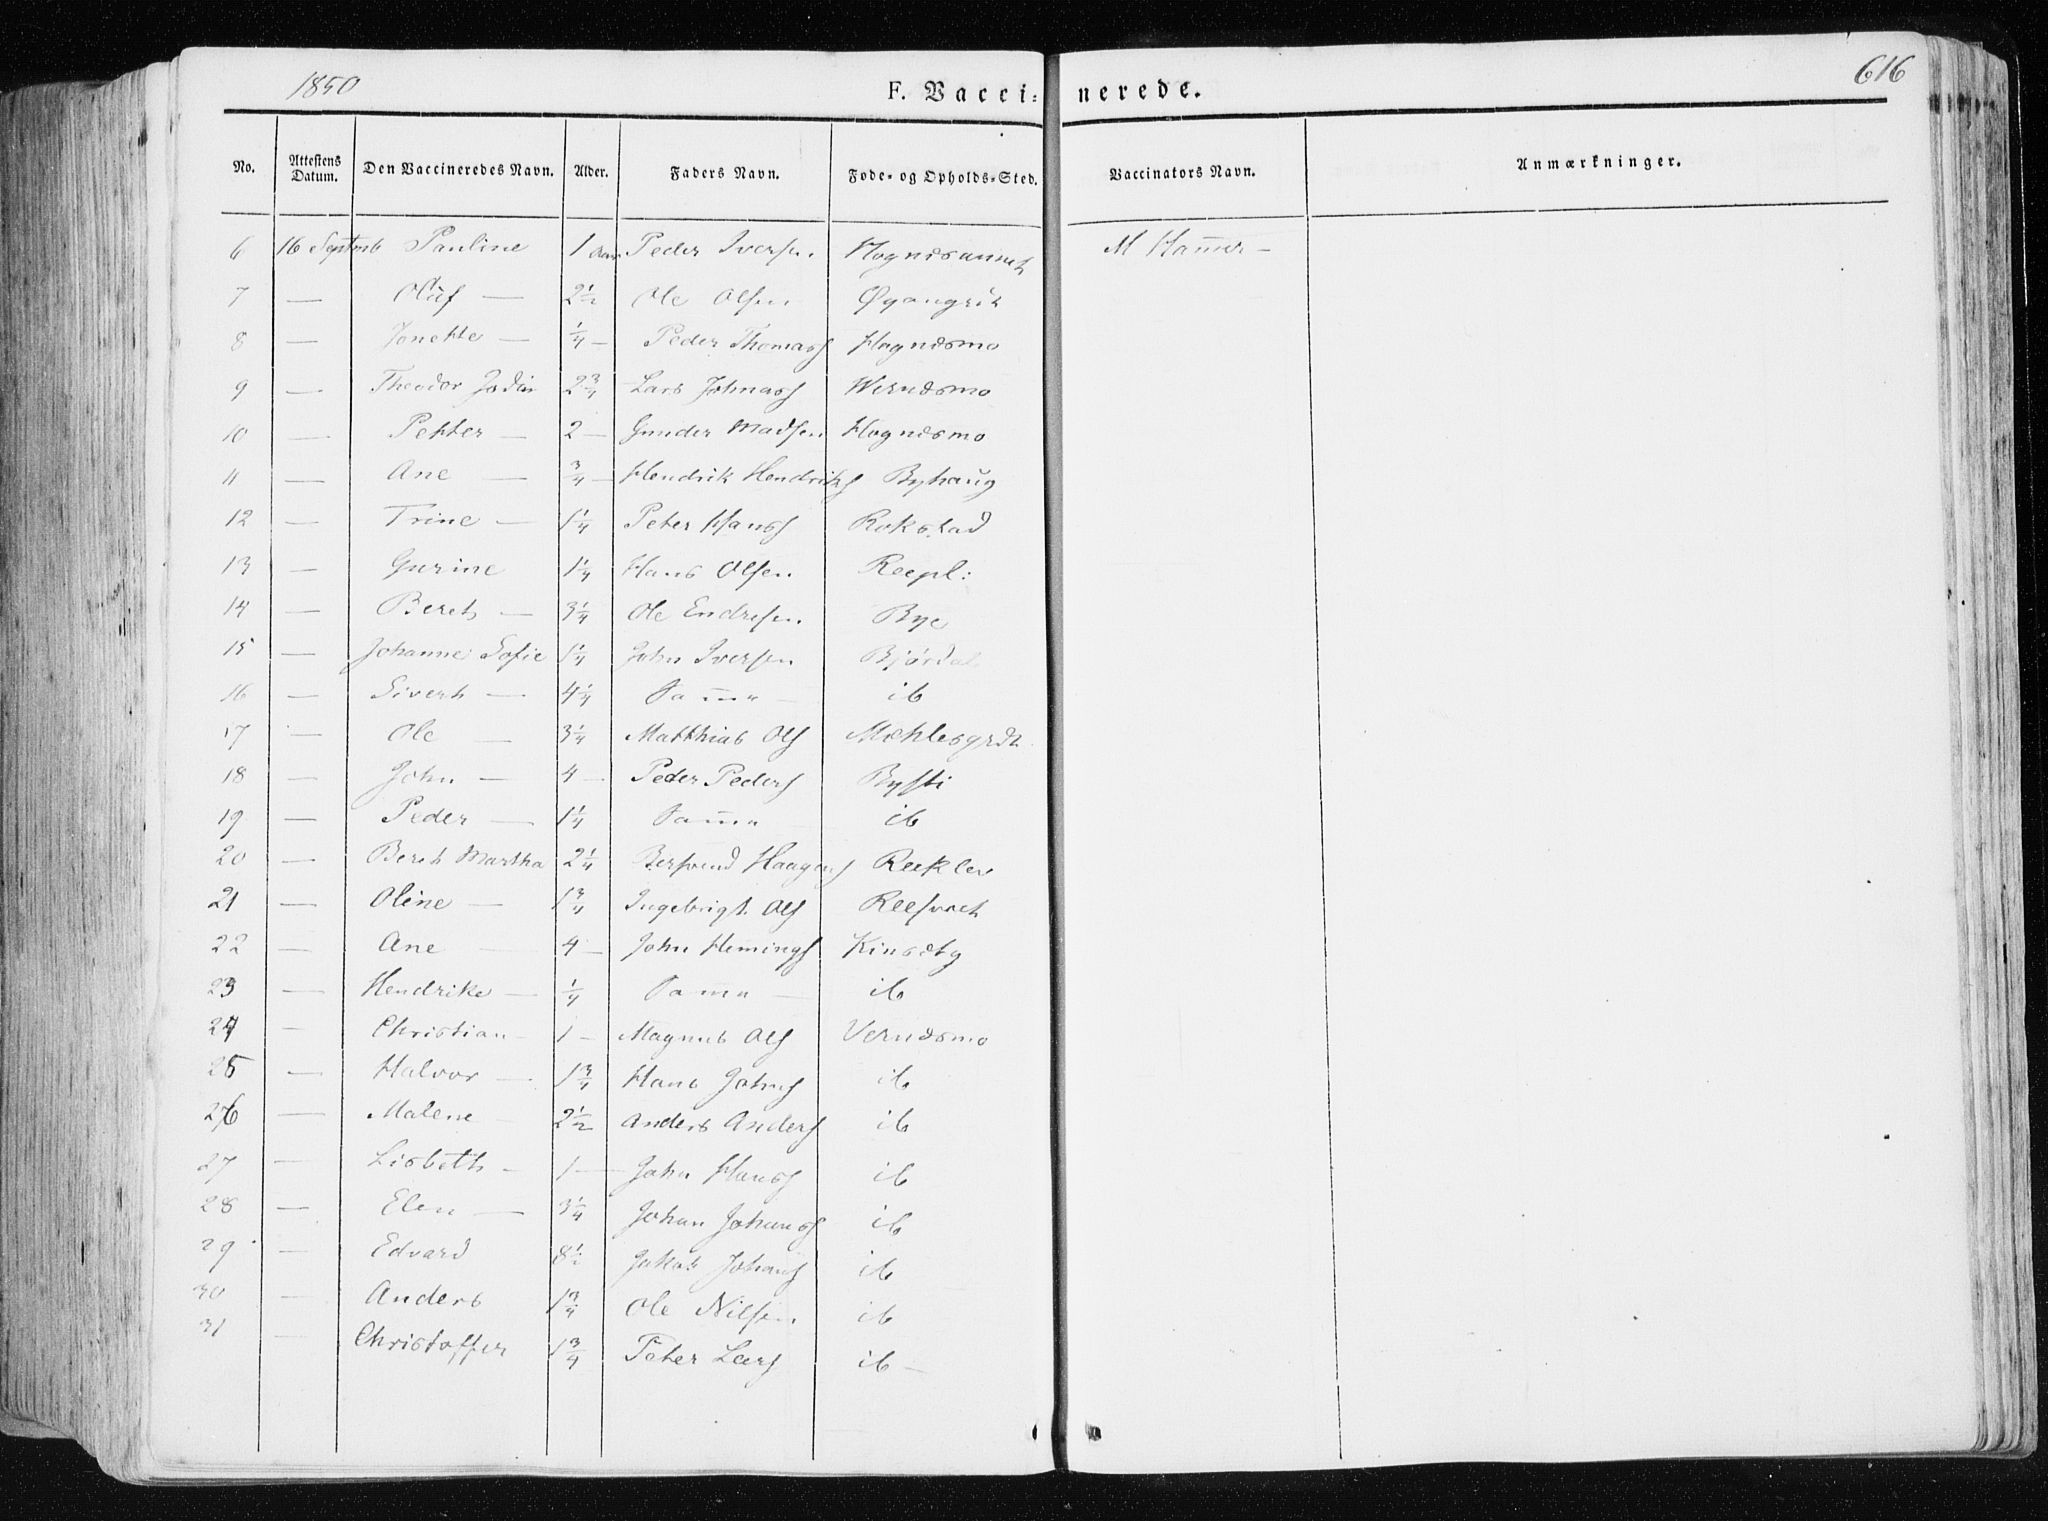 1850 F. Vaccinerede. 616
No. Attestens Datum. Den Vaccineredes Navn. Alder. Faders Navn. Føde- og Opholds-Sted. Vaccinators Navn. Anmærkninger.
6 16 Septmb Pauline 1 Aar Peder Iversen M Ham̄er —
7 — Oluf — 2½ Ole Olsen
8 — Jonette — ¼ — Peder Thomass Hognæsmo
9 — Theodor 2¾ Lars Johnass Wernæsmo
10 — Petter — 2 — Gunder Madsen Hognæsmo
11 — Ane — ¾ — Hendrik Hendriks Byhaug
12 — Trine — 1¼ Peter Hans Rokstad
13 — Gurine 1¼ Hans Olsen Reepl:
14 — Beret — 3¼ Ole Endresen Bye
15 — Johanne Sofie 1¼ John Iversen Bjørdal
16 — Sivert — 4¼ Sam̄e — ib
17 — Ole — 3¼ Matthias Ols Mæhlesgrdt
18 — John — 4 — Peder Peders Bysti
19 — Peder — 1¼ Sam̄e ib
20 — Beret Martha 2¼ Haagens Reekler
21 — Oline — 1¾ Ingebrigt Ols
22 — Ane — 4 — John Hemings
23 — Hendrike — ¼ Sam̄e — ib
24 — Christian — 1 — Magnus Ols Vernæsmo
25 — Halvor — 1¾ Hans Johns ib
26 — Malene — 2½ Anders Anders ib
27 — Lisbeth — 1 — John Hans ib
28 — Elen — 3¼ Johan Johans ib
29 — Edvard 8½ Jakob Johans ib
30 — Anders 1¾ Ole Nilsen ib
31 — Christoffer 1¾ Peter Lars ib —